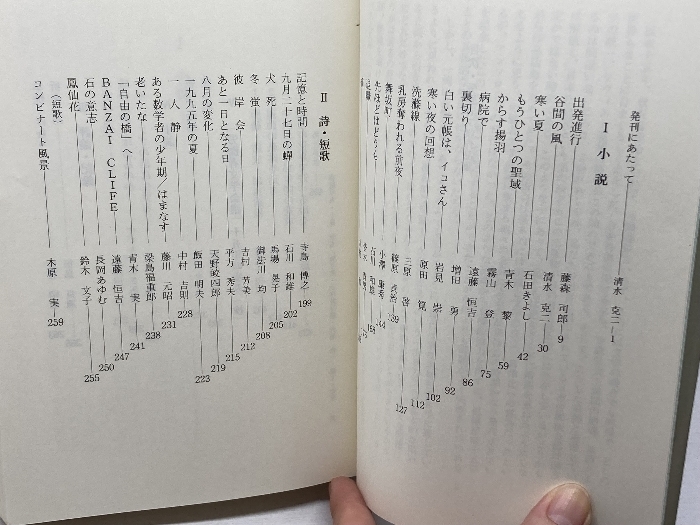 発刊にあたって 清水 克二 1
Ⅰ 小説
出発進行 藤森 司郎 9
谷間の風 清水 克二 30
寒い夏 石田きよし 42
もうひとつの聖域 青木 黎 59
からす揚羽 霧山 登 75
病院で 遠藤 恒吉 86
裏切り 増田 勇 92
白い元帳は、イコさん 岩見 崇 102
寒い夜の回想 原田 112
洗藤線 三原 啓 127
乳房奪われる前夜 篠原 139
舞坂町 小澤
Ⅱ 詩・短歌
記憶と時間 寺島 博之 199
九月二十七日の蟬 石川 和雄 202
犬死 馬場 晃子 205
冬蛍 御法川 均 208
彼岸会 吉村 芳美 212
あと一日となる日 平方 秀夫 215
八月の変化 天野暎四郎 219
一九九五年の夏 飯田 明夫 223
一人静 中村 吉則 228
ある数学者の少年期／はまなす 藤川 元昭 231
老いたな 桑島福重郎 238
「自由の橋」へ 青木 実 241
BANZAI CLIFF 遠藤 恒吉 247
石の意志 長岡あゆむ 250
鳳仙花 鈴木 文子 255
〈短歌〉
コンビナート風景 木原 実 259